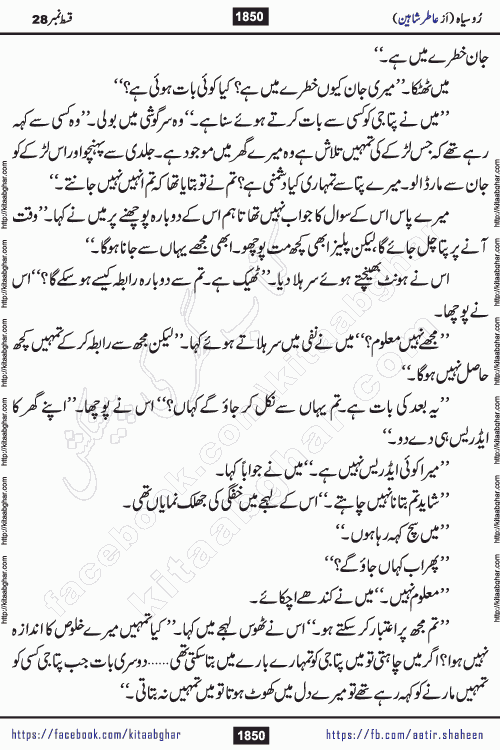 رُوسیاہ (از عاطر شاہین)
1850
قسط نمبر 28
جان خطرے میں ہے۔‘‘
میں ٹھٹکا۔ ’’میری جان کیوں خطرے میں ہے؟ کیا کوئی بات ہوئی ہے؟‘‘
’’میں نے پتا جی کو کسی سے بات کرتے ہوئے سنا ہے۔‘‘ وہ سرگوشی میں بولی۔ ’’وہ کسی سے کہہ
رہے تھے کہ جس لڑکے کی تمہیں تلاش ہے وہ میرے گھر میں موجود ہے۔ جلدی سے پہنچو اور اس لڑکے کو
جان سے مار ڈالو۔ میرے پتا سے تمہاری کیا دشمنی ہے؟ تم نے تو بتایا تھا کہ تم انہیں نہیں جانتے۔‘‘
میرے پاس اس کے سوال کا جواب نہیں تھا تاہم اس کے دوبارہ پوچھنے پر میں نے کہا۔ ’’وقت
آنے پر پتا چل جائے گا، لیکن پلیز ابھی کچھ مت پوچھو۔ ابھی مجھے یہاں سے جانا ہوگا۔‘‘
اس نے ہونٹ بھینچتے ہوئے سر ہلا دیا۔ ’’ٹھیک ہے۔ تم سے دوبارہ رابطہ کیسے ہو سکے گا؟‘‘ اس
نے پوچھا۔
’’مجھے نہیں معلوم؟‘‘ میں نے نفی میں سر ہلاتے ہوئے کہا۔ ’’لیکن مجھ سے رابطہ کر کے تمہیں کچھ
حاصل نہیں ہوگا۔‘‘
’’یہ بعد کی بات ہے۔ تم یہاں سے نکل کر جاؤ گے کہاں؟‘‘ اس نے پوچھا۔ ’’اپنے گھر کا
ایڈریس ہی دے دو۔‘‘
’’میرا کوئی ایڈریس نہیں ہے۔‘‘ میں نے جواباً کہا۔
’’شاید تم بتانا نہیں چاہتے۔‘‘ اس کے لہجے میں خفگی کی جھلک نمایاں تھی۔
’’میں سچ کہہ رہا ہوں۔‘‘
’’پھر اب کہاں جاؤ گے؟‘‘
’’معلوم نہیں۔‘‘ میں نے کندھے اچکائے۔
’’تم مجھ پر اعتبار کر سکتے ہو۔‘‘ اس نے ٹھوس لہجے میں کہا۔ ’’کیا تمہیں میرے خلوص کا اندازہ
نہیں ہوا؟ اگر میں چاہتی تو میں پتا جی کو تمہارے بارے میں بتا سکتی تھی......دوسری بات جب پتا جی کسی کو
تمہیں مارنے کو کہہ رہے تھے تو میرے دل میں کھوٹ ہوتا تو میں تمہیں نہ بتاتی۔‘‘
کتاب گھر کی پیشکش
facebook.com/kitaabghar
kitaabghar.com
http://kitaabghar.com
http://kitaabghar.com
http://kitaabghar.com
http://kitaabghar.com
http://kitaabghar.com
http://kitaabghar.com
http://kitaabghar.com
http://kitaabghar.com
http://kitaabghar.com
http://kitaabghar.com
http://kitaabghar.com
http://kitaabghar.com
https://facebook.com/kitaabghar
1850
https://fb.com/aatir.shaheen